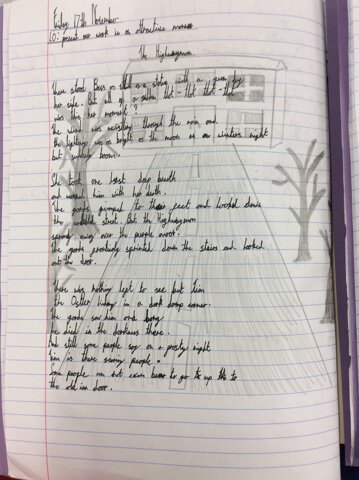 Friday 17th November
LO: present our work in an attractive manner
The Highwayman
There stood Bess as still as a statue with a gun by
her side. But all of a sudden, tlot - tlot tlot - tlot
was this her moment?
The wind was whistling through the rain and
the lightning was as bright as the moon on a winters night
but suddenly boom.
She took one last deep breath
and warned him with her death.
The guards jumped to their feet and looked down
the cobble street. But the Highwayman
away over the purple moor.
The guards sprinted down the stairs and looked
out the door.
There was nothing left to see but Tim
the Ostler hiding in a dark damp corner.
The guards saw him and bang
he died in the darkness there.
And still some people say on a frosty night
him is there
Some people can not even to go up to
the old inn door.